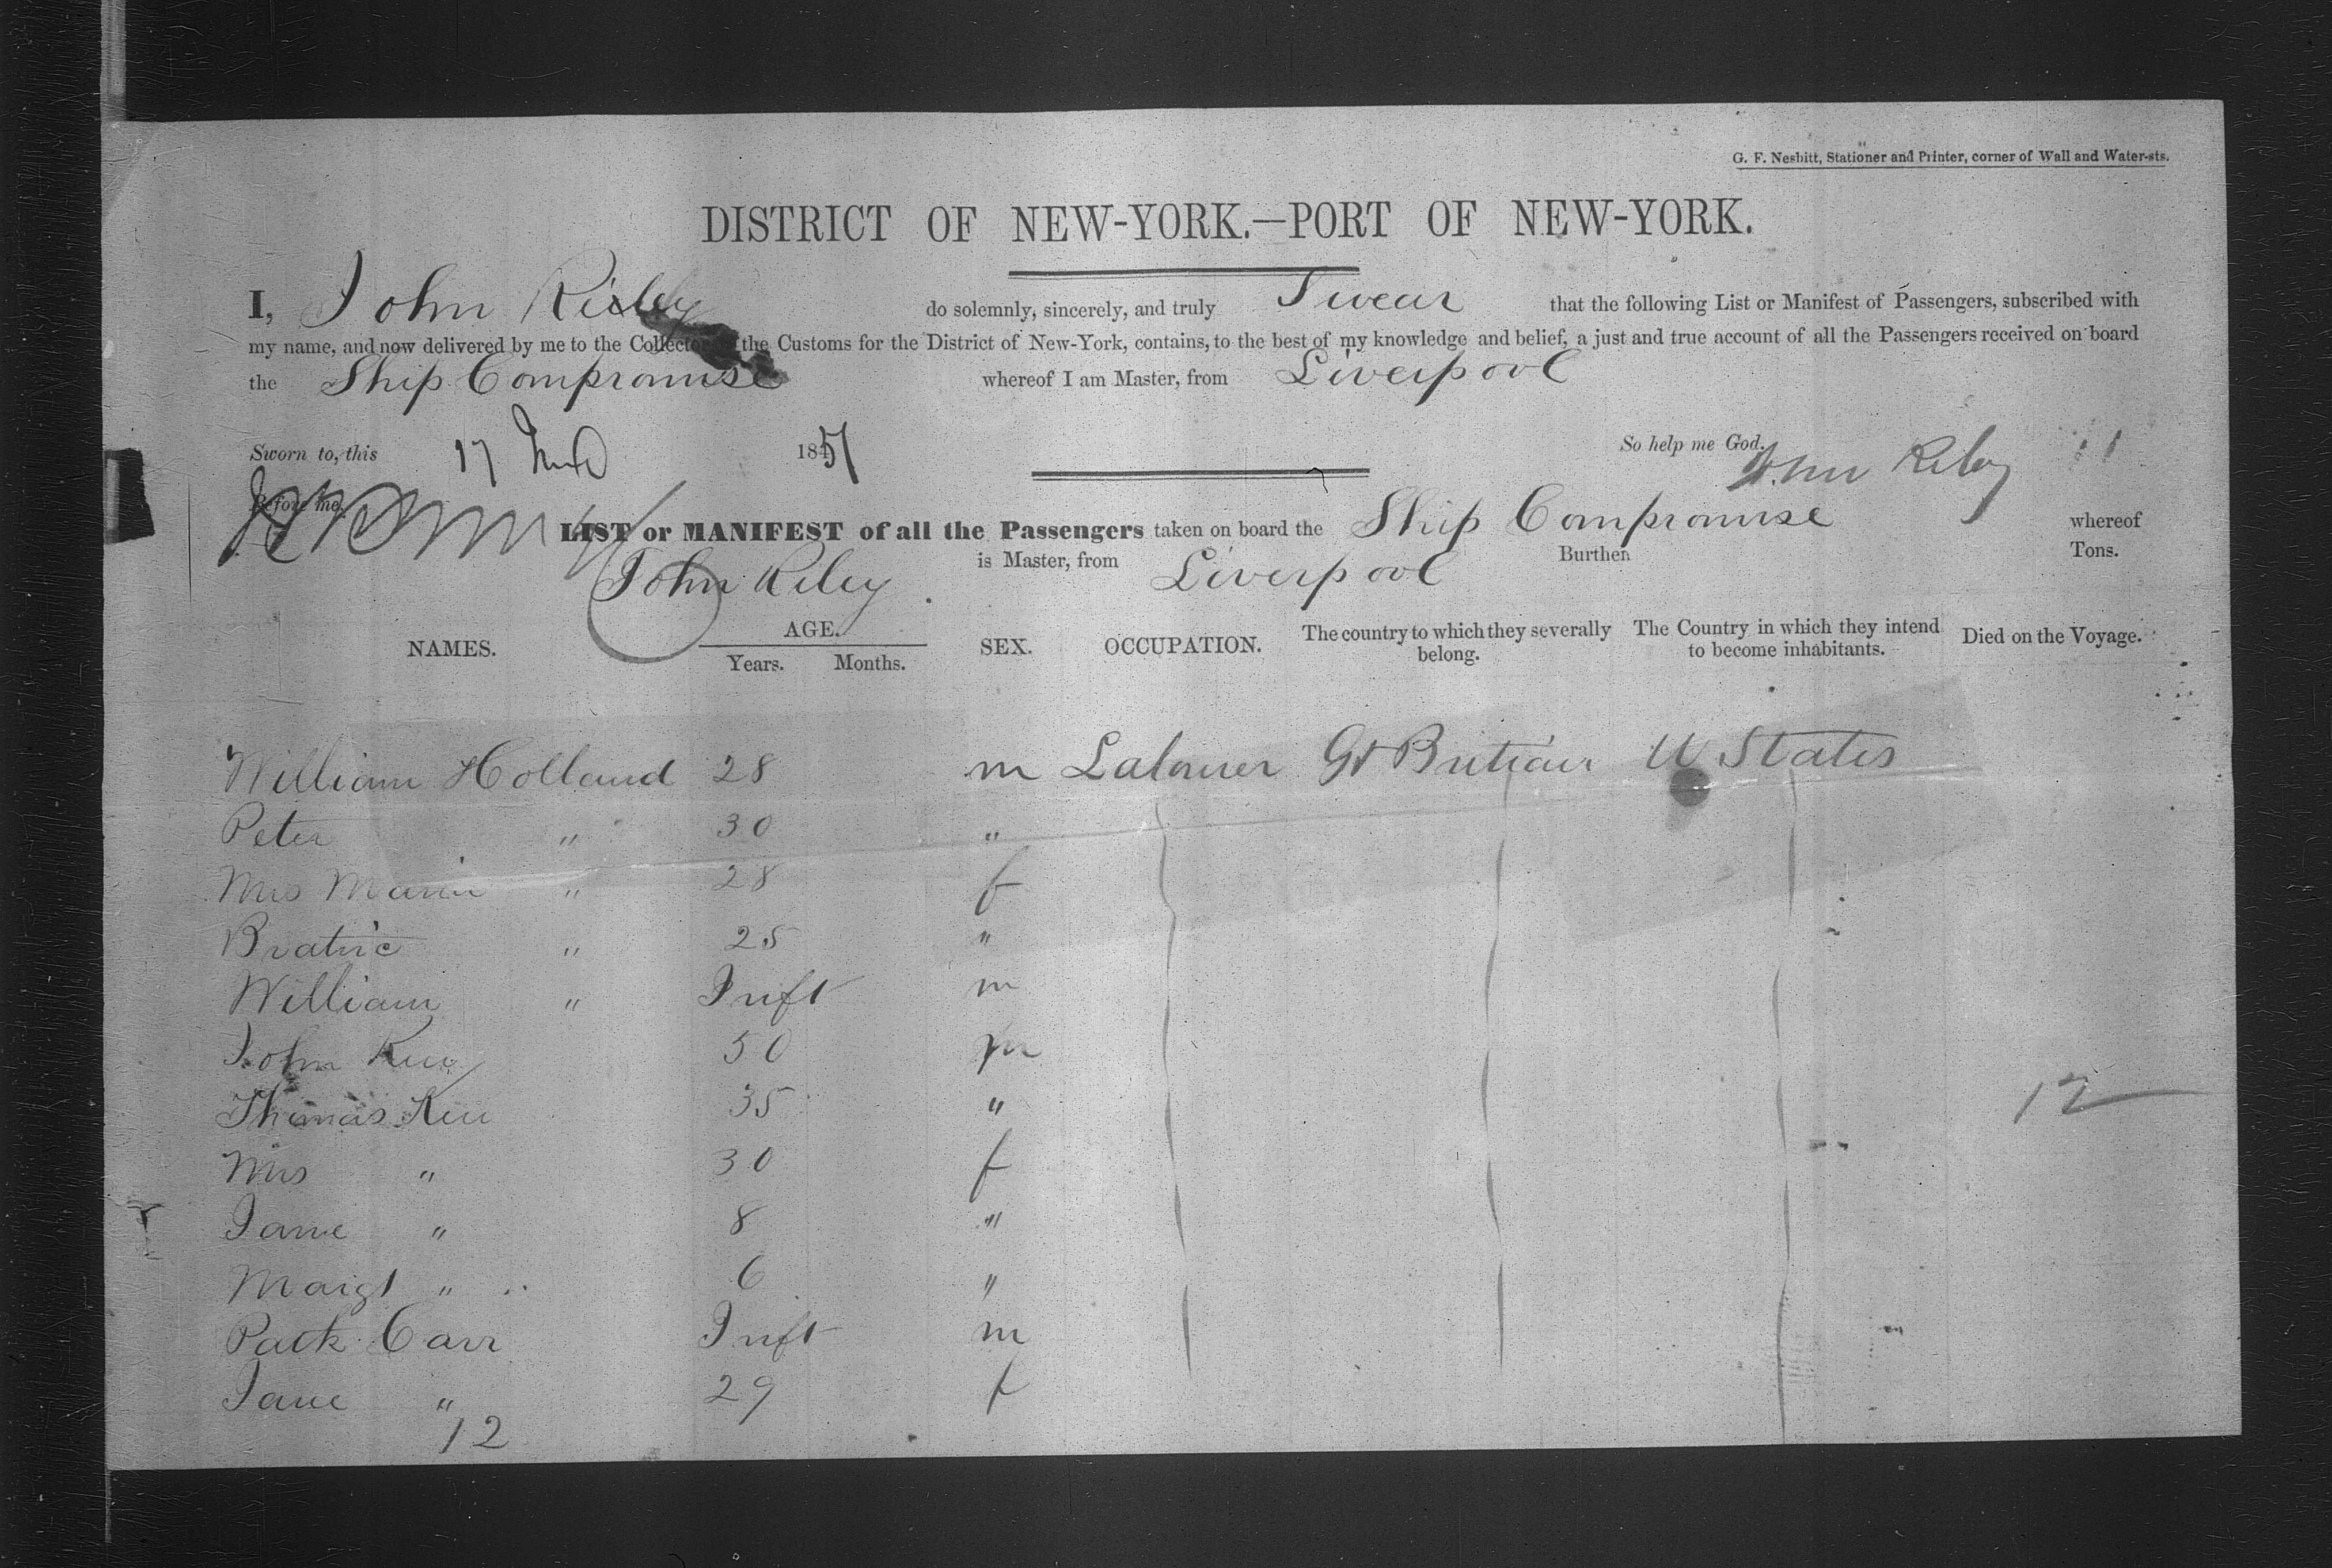 G. F. Nesbitt, Stationer and Printer, corner of Wall and Water-sts.
DISTRICT OF NEW-YORK.—PORT OF NEW-YORK.
I, John Riley do solemnly, sincerely, and truly Swear that the following List or Manifest of Passengers, subscribed with
my name, and now delivered by me to the Collector of the Customs for the District of New-York, contains, to the best of my knowledge and belief, a just and true account of all the Passengers received on board
the Ship Compromise whereof I am Master, from Liverpool
Sworn to, this 17 1851 So help me God. John Riley
Before me,
LIST or MANIFEST of all the Passengers taken on board the Ship Compromise whereof
John Riley is Master, from Liverpool Burthen Tons.
NAMES. AGE. Years. Months. SEX. OCCUPATION. The country to which they severally belong. The Country in which they intend to become inhabitants. Died on the Voyage.
William Holland 28 m Labourer Gt Britian U States
Peter " 30 "
Mrs " 28 f
" 25 "
William " Inft m
John 50 m
Thomas 35 "
Mrs " 30 f
Jane " 8 "
Margt " 6 "
Patk Carr Inft m
Jane " 29 f
12
12